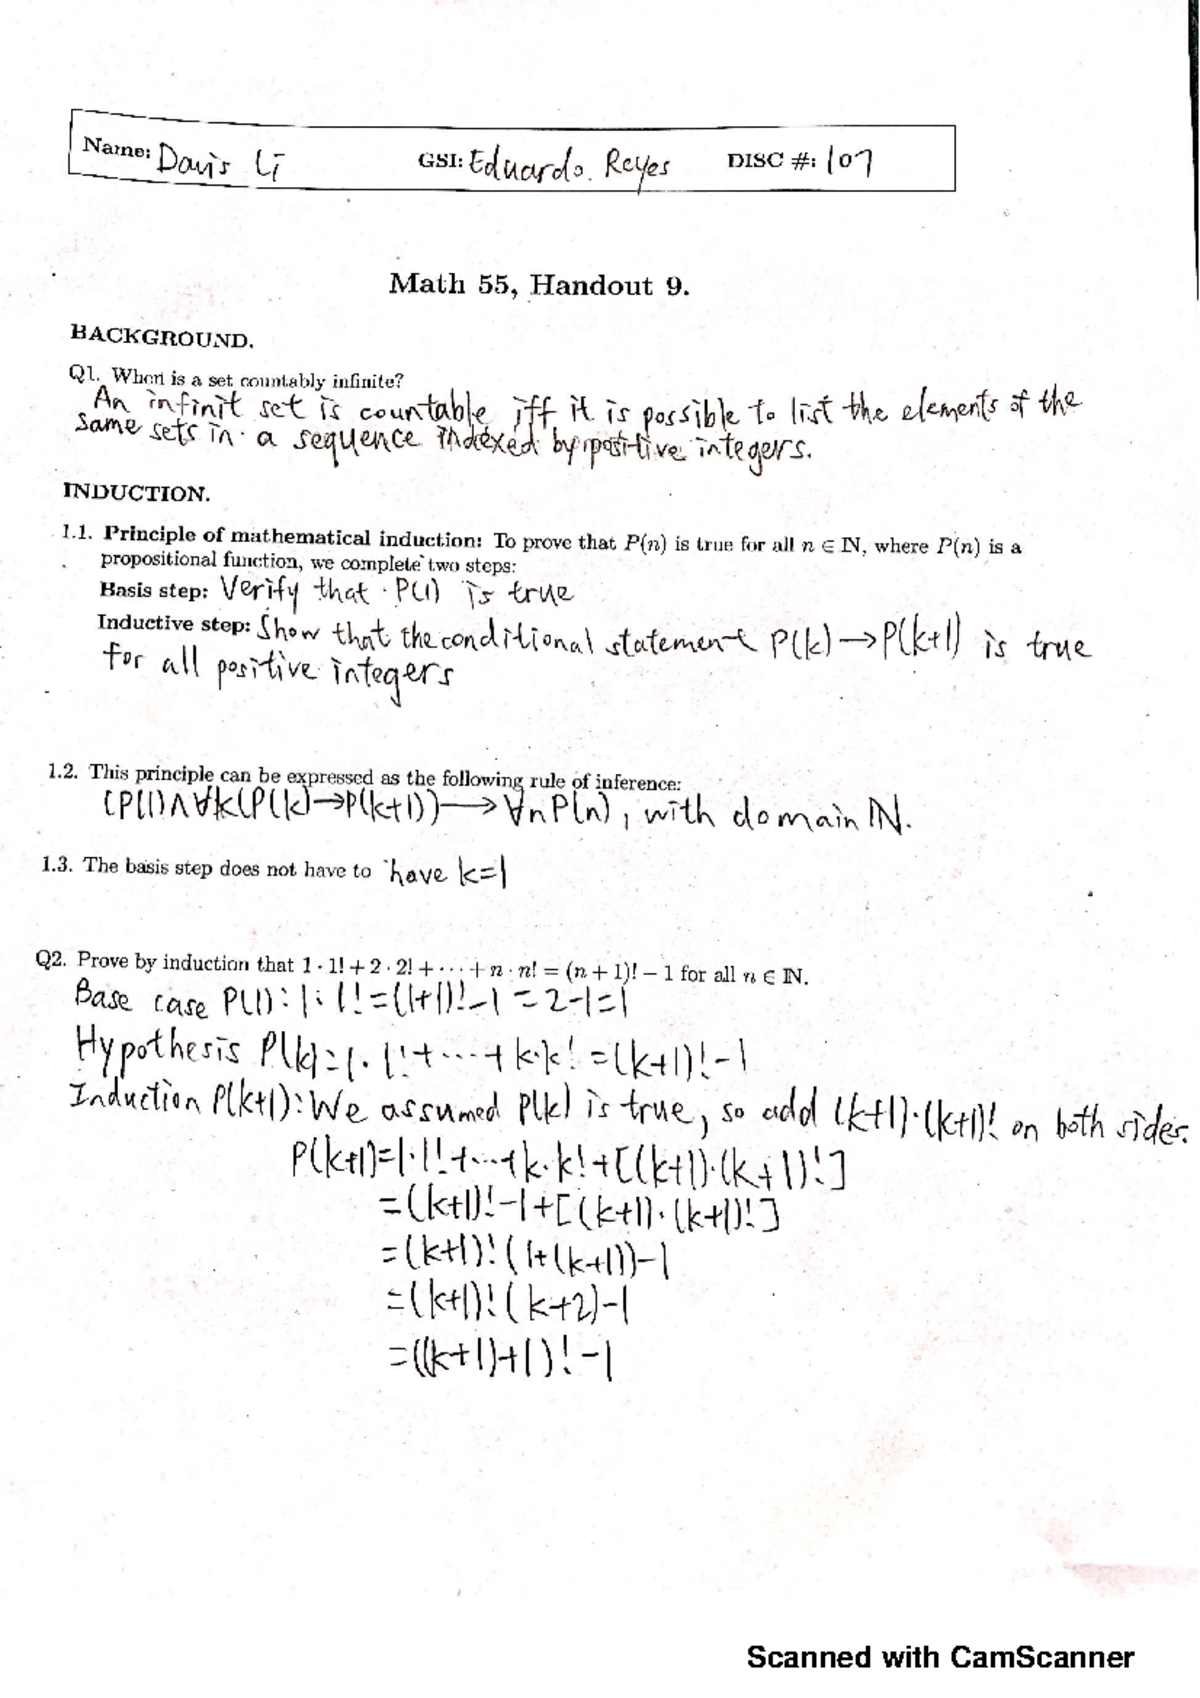 Name: Davis Li GSI: Eduardo. Reyes DISC #: 107
Math 55, Handout 9.
BACKGROUND.
Q1. When is a set countably infinite?
An infinit set is countable iff it is possible to list the elements of the
same sets in a sequence indexed by positive integers.
INDUCTION.
1.1. Principle of mathematical induction: To prove that P(n) is true for all n ∈ ℕ, where P(n) is a
propositional function, we complete two steps:
Basis step: Verify that P(1) is true
Inductive step: Show that the conditional statement P(k)→P(k+1) is true
for all positive integers
1.2. This principle can be expressed as the following rule of inference:
(P(1)∧∀k(P(k)→P(k+1))→∀nP(n), with domain ℕ.
1.3. The basis step does not have to have k=1
Q2. Prove by induction that 1 · 1! + 2 · 2! + ··· + n · n! = (n + 1)! − 1 for all n ∈ ℕ.
Base case P(1): 1·1!=(1+1)!-1=2-1=1
Hypothesis P(k)=1·1!+···+k·k!=(k+1)!-1
Induction P(k+1): We assumed P(k) is true, so add (k+1)·(k+1)! on both sides.
P(k+1)=1·1!+···+k·k!+[(k+1)·(k+1)!]
=(k+1)!-1+[(k+1)·(k+1)!]
=(k+1)!(1+(k+1))-1
=(k+1)!(k+2)-1
=((k+1)+1)!-1
Scanned with CamScanner